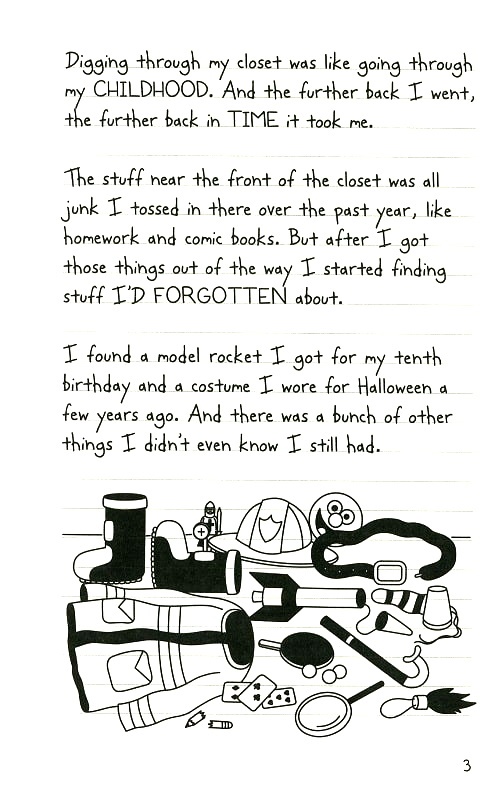 Digging through my closet was like going through
my CHILDHOOD. And the further back I went,
the further back in TIME it took me.
The stuff near the front of the closet was all
junk I tossed in there over the past year, like
homework and comic books. But after I got
those things out of the way I started finding
stuff I'D FORGOTTEN about.
I found a model rocket I got for my tenth
birthday and a costume I wore for Halloween a
few years ago. And there was a bunch of other
things I didn't even know I still had.
3